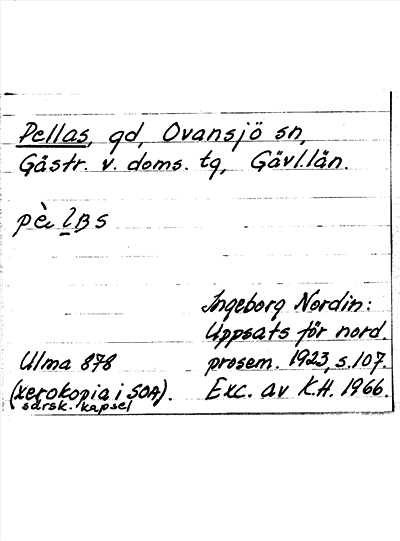 Pellas, gd, Ovansjö sn,
Gästr. v. doms. tg, Gävl.län.
Ingeborg Nordin:
Uppsats för nord.
Ulma 878 prosem. 1923, s. 107.
(xerokopia i SOA). Exc. av K.H. 1966.
särsk. kapsel